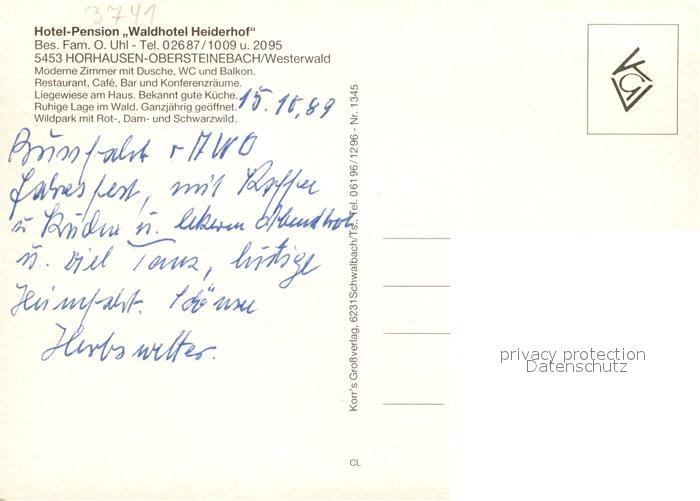 3741
Hotel-Pension „Waldhotel Heiderhof"
Bes. Fam. O. Uhl - Tel. 02687/1009 u. 2095
5453 HORHAUSEN-OBERSTEINEBACH/Westerwald
Moderne Zimmer mit Dusche, WC und Balkon.
Restaurant, Café, Bar und Konferenzräume.
Liegewiese am Haus. Bekannt gute Küche.
Ruhige Lage im Wald. Ganzjährig geöffnet.
Wildpark mit Rot-, Dam- und Schwarzwild.
15.10.89
Bussfahrt AWO
Jahresfest, mit Kaffee
u Kuchen u. leckerem Abendbrot
u. viel Tanz, lustige
Heimfahrt. Schönes
Herbswetter.
Korr's Großverlag, 6231 Schwalbach/Ts., Tel. 06196/1296 - Nr. 1345
CL
privacy protection
Datenschutz